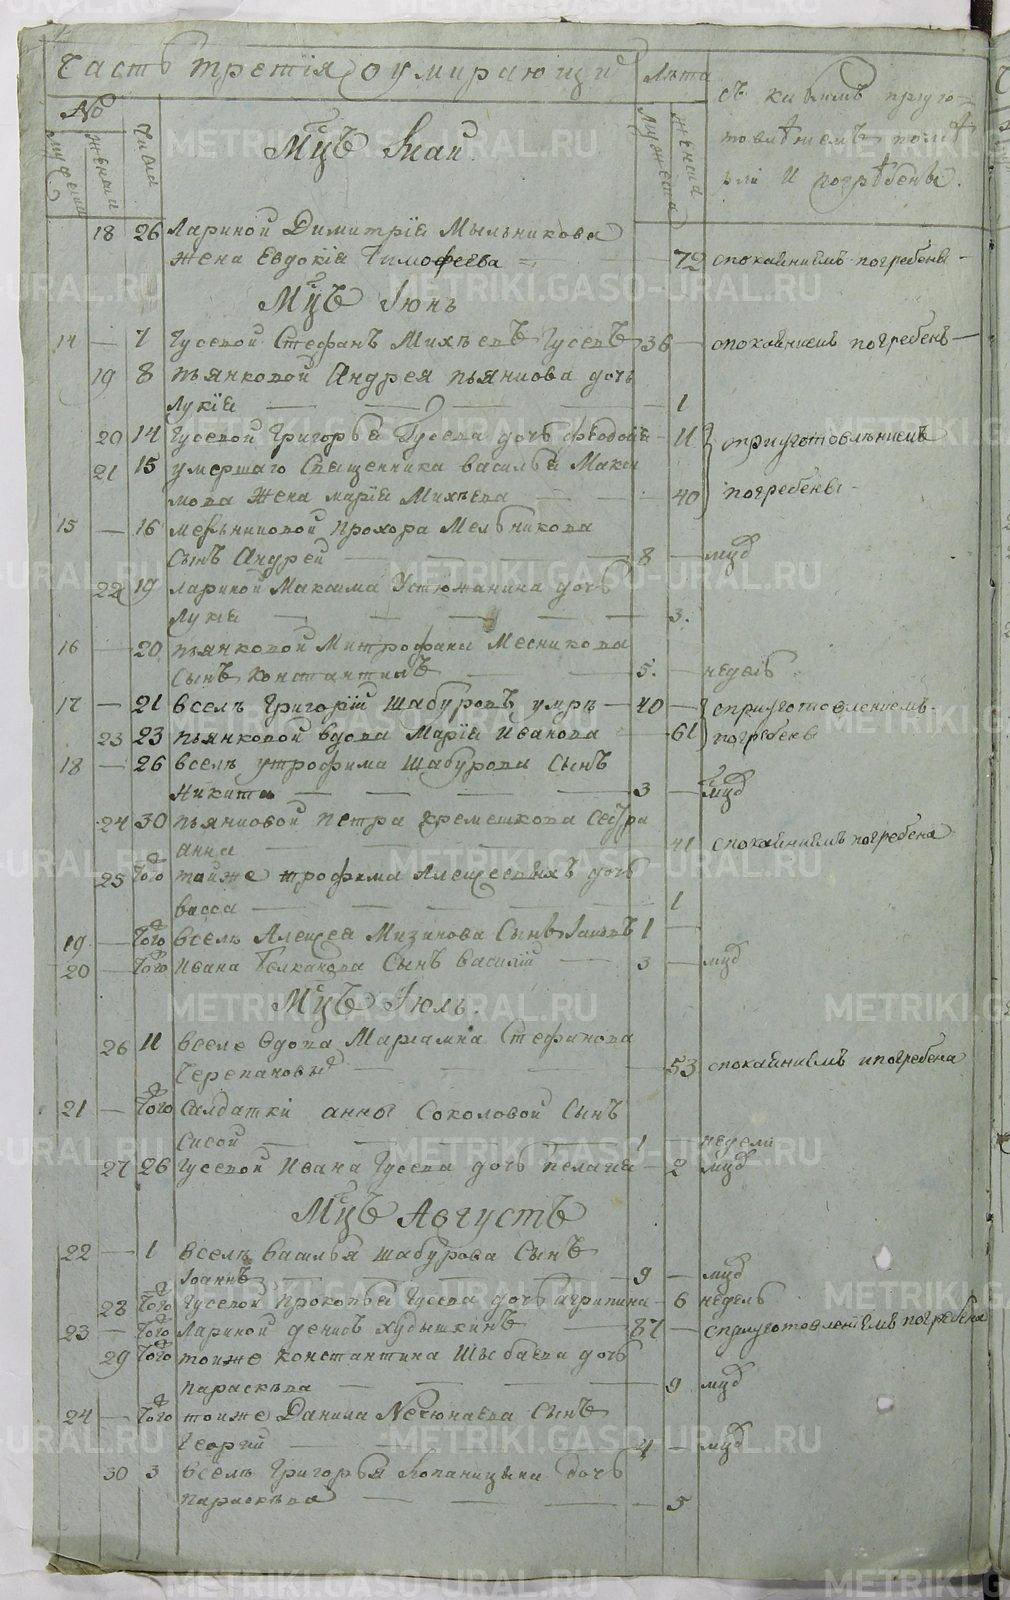 Часть третїя о умирающиⷯ
Лѣта
съ какимъ пригу-
товлѣнїемъ поме
рли и погрѣбены.
№
мужеска
женска
числа
мужеска
женска
Мцъ Маи
18 26 Лариной Димитрїя Мыльникова
жена Евдокїя Тимофеева 72 спокаяниемъ погребены
Мцъ Іюнь
14 — 7 Гусевой Стефанъ Михѣевъ Гусевъ 36 — спокаяниемъ погребенъ
19 8 пьянковой Андрея пьянкова дочь
Лукїя 1
20 14 Гусевой Григорья Гусева дочь 11 сприуготовлѣниемъ
21 15 умершаго Священника василья Макси
мова жена марїя Михѣева 40 погребены
15 — 16 мельниковой прохора Мельникова
сынъ Андрей 8 — мцд
22 19 лариной Максима Устюжанина дочь
Лукия 3.
16 — 20 пьянковой Митрофана Месникова
сынъ константинъ 5. — недель
17 — 21 вселъ Григорїй шабуровъ умръ 40 — сприуготовлениемъ
23 23 пьянковой вдова Марїя Иванова 61 погребены
18 — 26 вселъ утрофима Шабурова сынъ
Никита 3 — мцд
24 30 пьянковой петра кремешкова сестра
анна 41 спокаяниемъ погребена
25 Того тойже трофима Алексеевыхъ дочь
васса 1
19 — Того вселъ Алексея Мизинова Сынъ Іаковъ 1 —
20 — Того Ивана Сынъ василий 3 — мцд
Мцъ Іюль.
26 11 вселе вдова Мариамна Стефанова
Черепановыⷯ 53 спокаяниемъ ипогребена
21 — Того Салдатки анног Соколовой Сынъ
Сисой 1 недели
27 26 Гусевой Ивана Гусева дочь пелагия — 2 мцд
Мцъ Августъ
22 — 1 вселъ василья шабурова Сынъ
Іоаннъ 9 — мцд
28 Того Гусевой прокопья Гусева дочь агрипина — 6 недель
23 — Того Лариной денисъ худышкинъ 87 — сприуготовлениемъ погребена
29 Того тоиже константина Шысбаева дочь
параскѣва 9 мцд
24 — Того тоиже Данила Нехонаева Сынъ
Георгий 4 — мцд
30 3 вселъ Григорья Копаницына дочь
параскѣва 5
METRIKI.GASO-URAL.RU